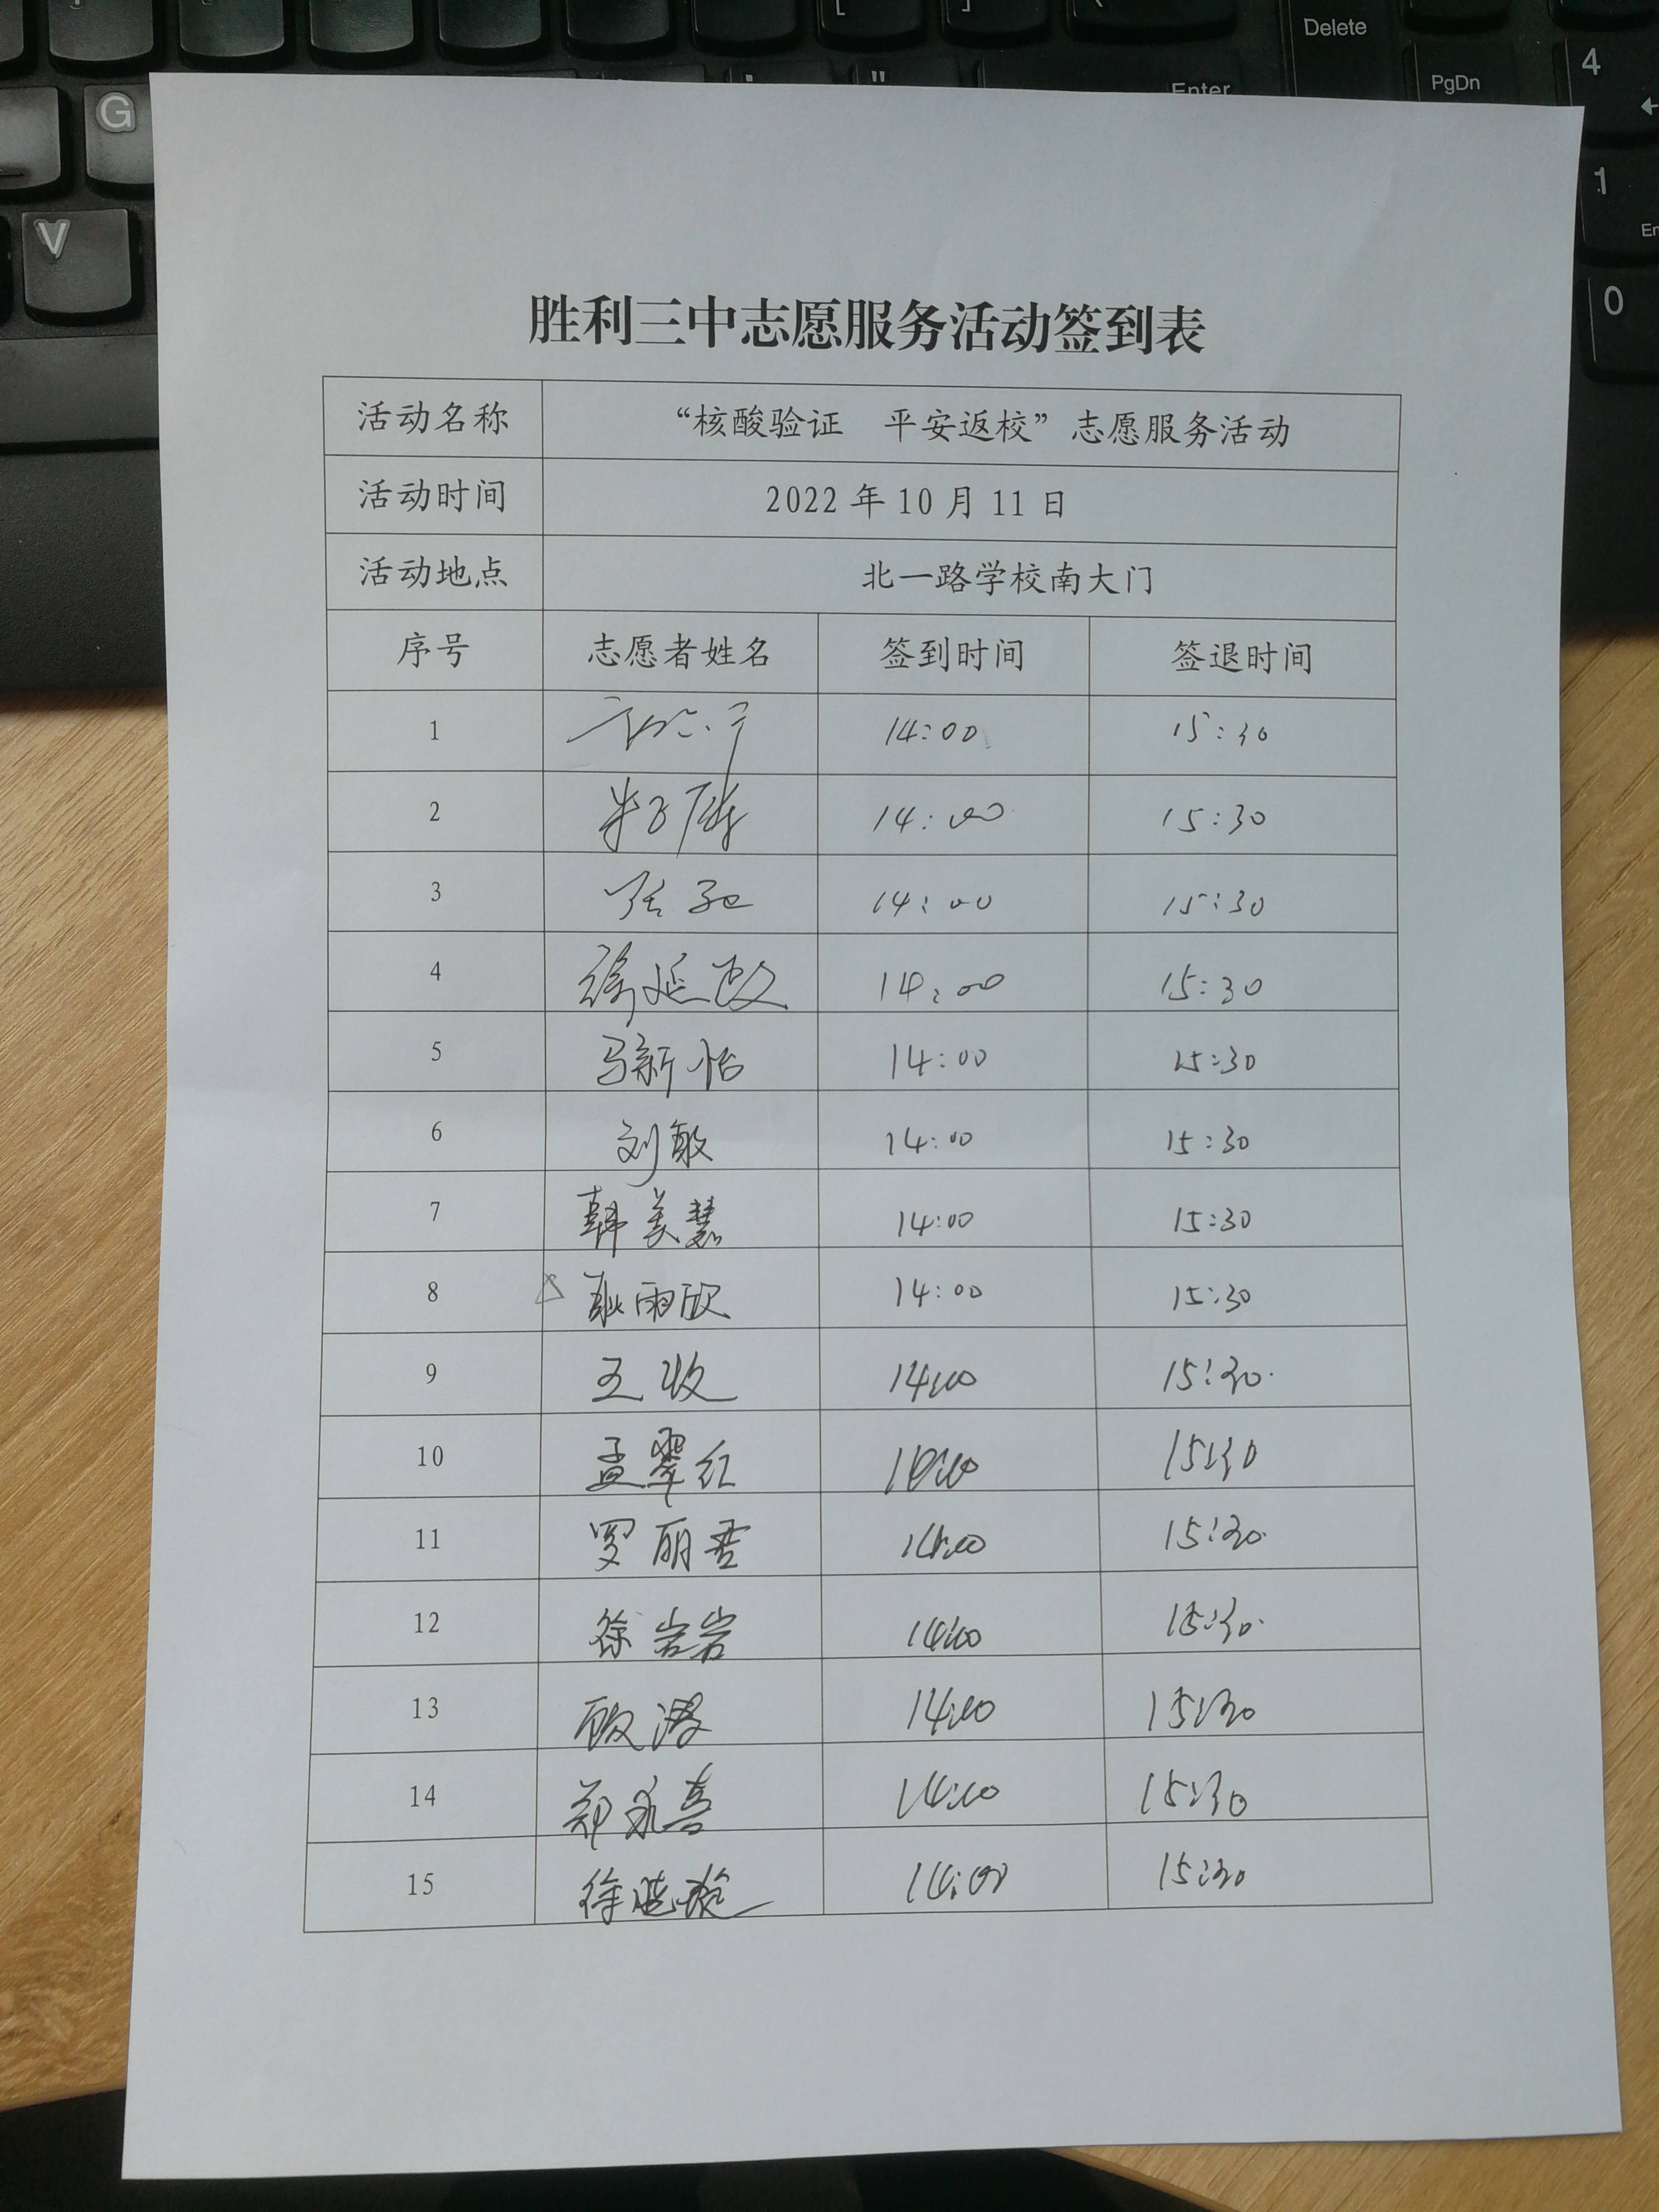 Delete
PgDn
Enter
4
1
0
G
V
胜利三中志愿服务活动签到表
活动名称 “核酸验证 平安返校”志愿服务活动
活动时间 2022 年 10 月 11 日
活动地点 北一路学校南大门
序号 志愿者姓名 签到时间 签退时间
1 14:00 15:30
2 14:00 15:30
3 14:00 15:30
4 徐延政 14:00 15:30
5 马新怡 14:00 15:30
6 刘敏 14:00 15:30
7 韩美慧 14:00 15:30
8 耿雨欣 14:00 15:30
9 王牧 14:00 15:30
10 孟翠红 14:00 15:30
11 罗丽君 14:00 15:30
12 徐岩岩 14:00 15:30
13 14:00 15:30
14 郑永喜 14:00 15:30
15 徐 14:00 15:30